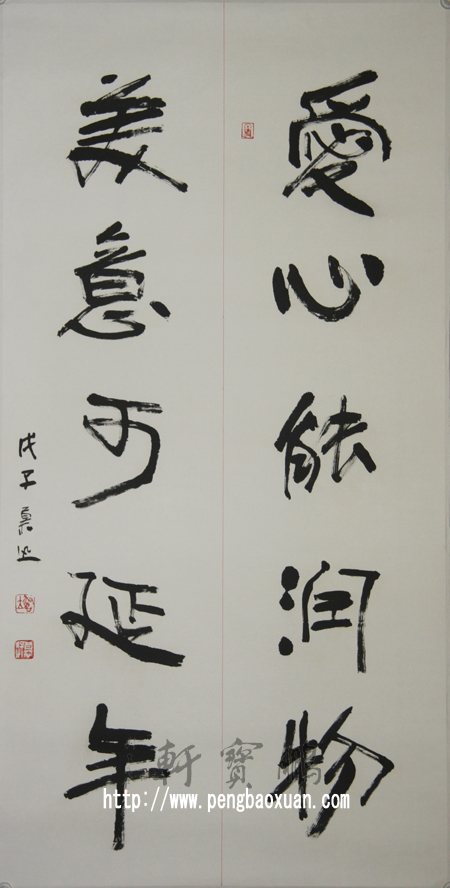 愛心能润物
美意可延年
戊子
鵬寶軒
http://www.pengbaoxuan.com/